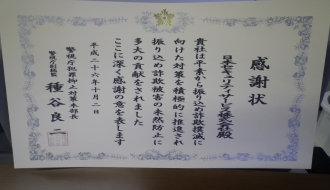 感謝状
殿
貴社は平素から振り込め詐欺撲滅に
向けた対策を積極的に推進され
振り込め詐欺被害の未然防止に
多大の貢献をされました
ここに深く感謝の意を表します
平成二十六年十月二日
警視庁犯罪抑止対策本部長
警視庁副総監
種谷良二